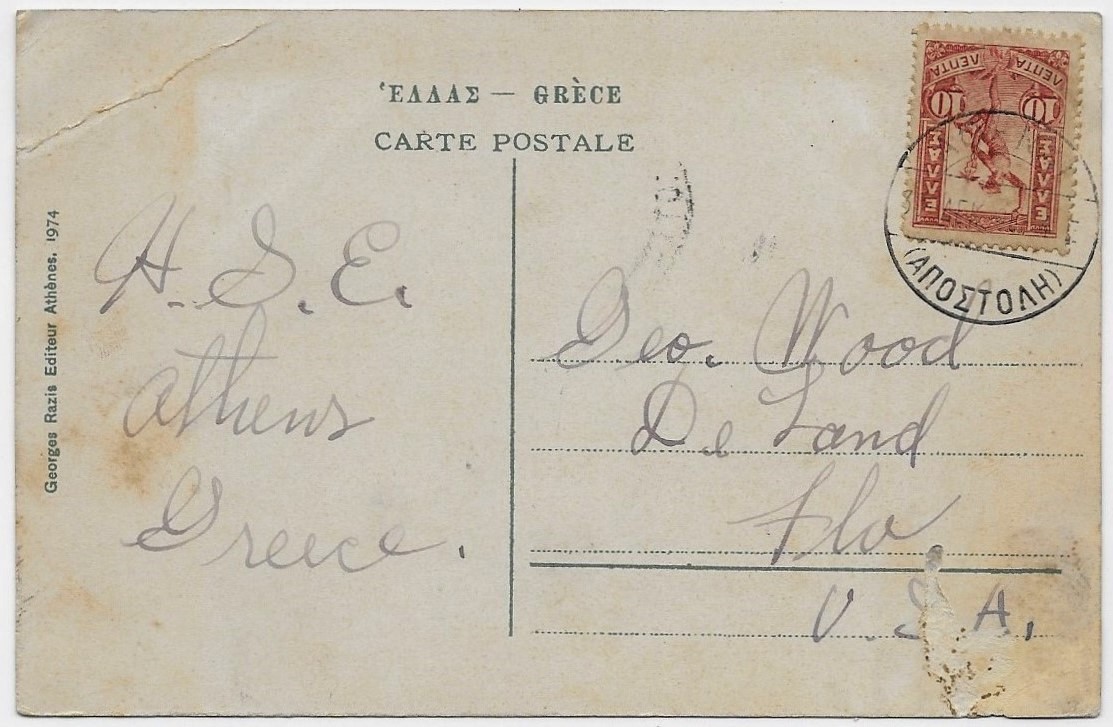 ἙΛΛΑΣ — GRÈCE
CARTE POSTALE
Georges Razis Editeur Athènes. 1974
H. S. E.
Athens
Greece.
Geo. Wood
De Land
Fla
U. S. A.
ΛΕΠΤΑ ΛΕΠΤΑ
10 10
ΕΛΛΑΣ ΕΛΛΑΣ
(ΑΠΟΣΤΟΛΗ)